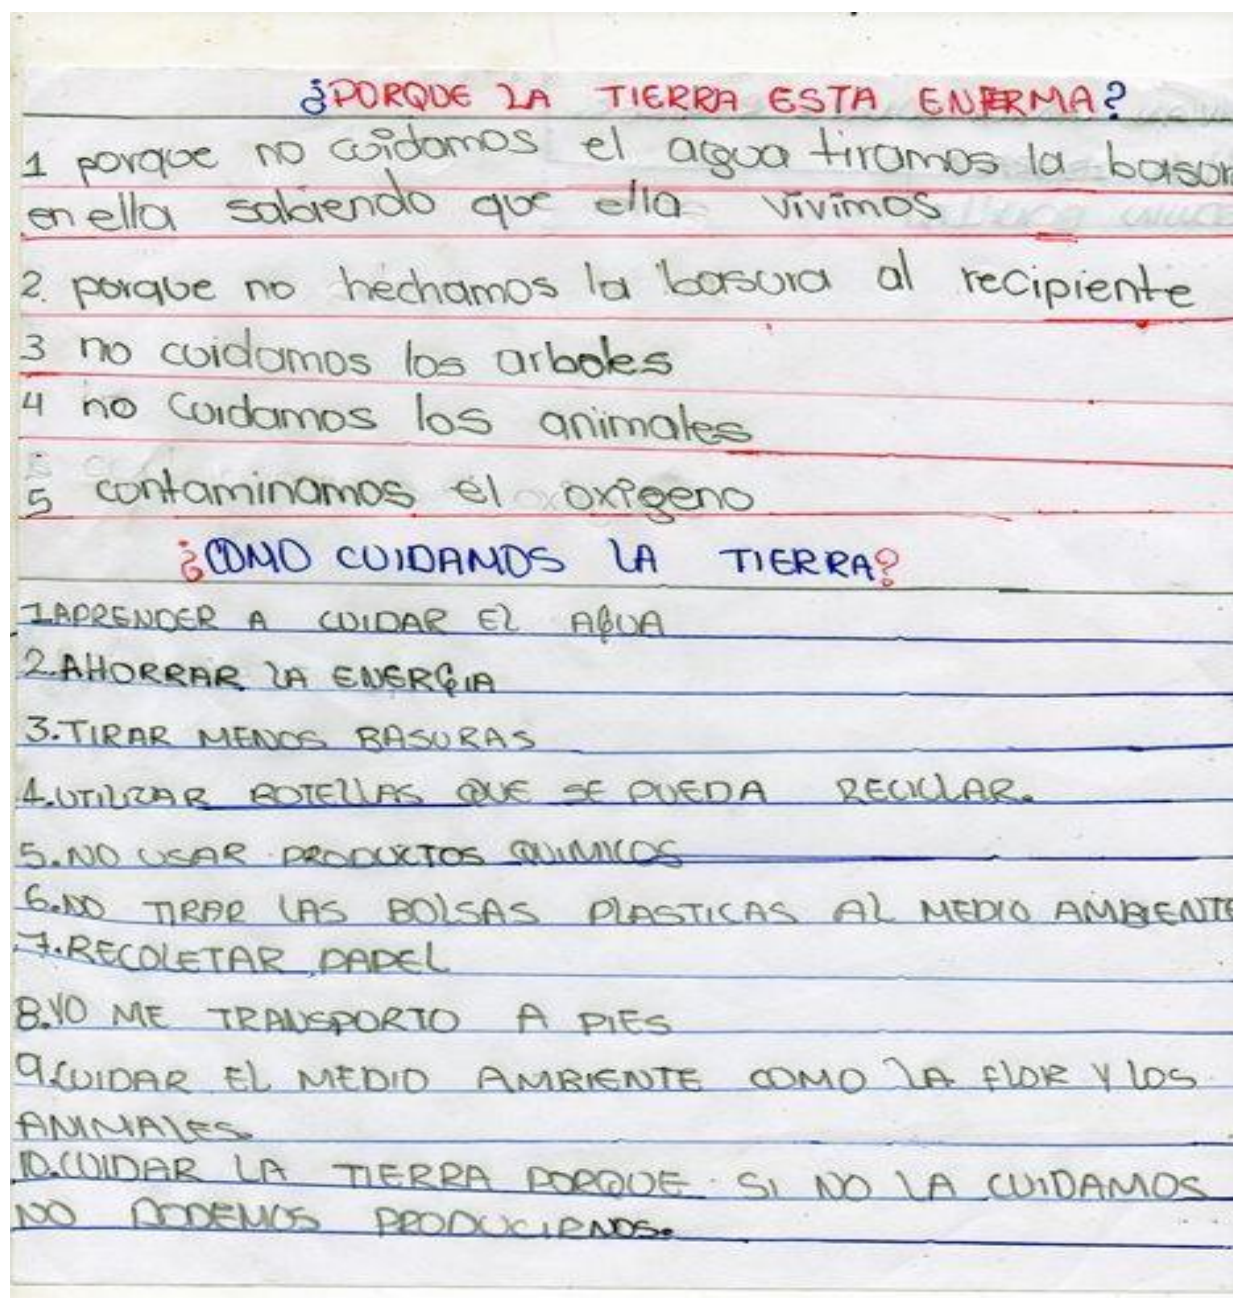 ¿PORQUE LA TIERRA ESTA ENFERMA?
1 porque no cuidamos el agua tiramos la basur
en ella sabiendo que ella vivimos
2. porque no héchamos la basura al recipiente
3 no cuidamos los arboles
4 no cuidamos los animales
5 contaminamos el oxigeno
¿COMO CUIDAMOS LA TIERRA?
1 APRENDER A CUIDAR EL AGUA
2. AHORRAR LA ENERGIA
3. TIRAR MENOS BASURAS
4. UTILIZAR BOTELLAS QUE SE PUEDA RECICLAR.
5. NO USAR PRODUCTOS QUIMICOS
6. NO TIRAR LAS BOLSAS PLASTICAS AL MEDIO AMBIENTE
7. RECOLETAR PAPEL
8. YO ME TRANSPORTO A PIES
9. CUIDAR EL MEDIO AMBIENTE COMO LA FLOR Y LOS
ANIMALES
10. CUIDAR LA TIERRA PORQUE SI NO LA CUIDAMOS
NO PODEMOS PRODUCIRNOS.